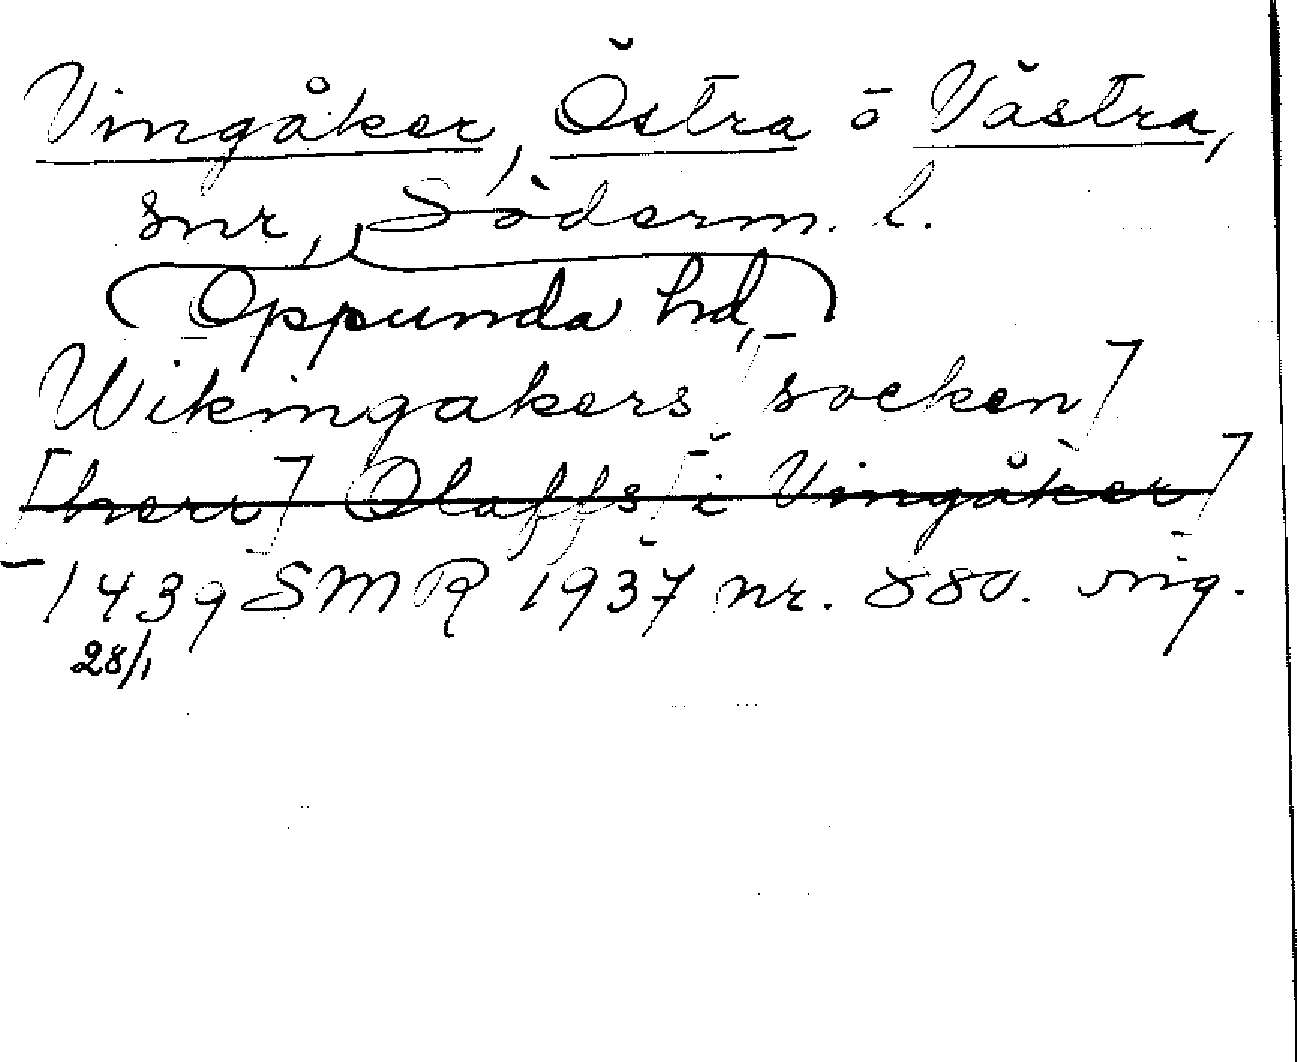 Vingåker, Östra o Västra,
snr, Söderm. l.
Oppunda hd,
Wikingakers [socken]
[herr] Olaffs [i Vingåker]
1439 SMR 1937 nr. 880. orig.
28/1